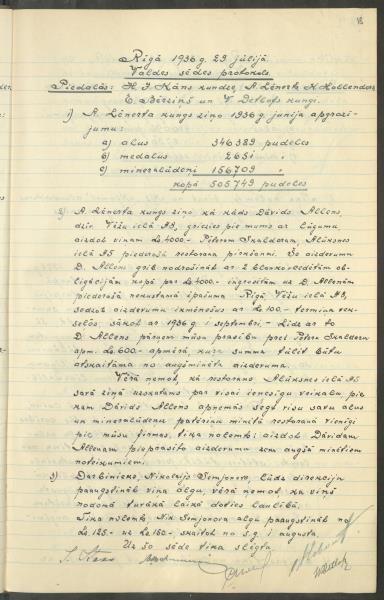 18
Rīgā 1936 g. 29 jūlijā.
Valdes sēdes protokols.
Piedalās: H. J. Kāns kundze, A. Lēnerts, K. Hollenders
E. Bērziņš un V. Detlofs kungi.
1) A. Lēnerta kungs ziņo 1936 g. jūnija apgrozī-
jumu:
a) alus 346389 pudeles
b) medalus 2651 "
c) minerālūdeņi 156709 "
kopā 505749 pudeles
2) A. Lēnerta kungs ziņo ka kāds Dāvids Allens,
dzīv. Vēžu ielā 13, griezies pie mums ar lūgumu
aizdot viņam Ls 4000.- Pētera Skaldera, Alūksnes
ielā 15 piederošā restorāna pirkšanai. Šo aizdevumu
D. Allens grib nodrošināt ar 2 blankocedētām ob-
ligācijām kopā par Ls 4000.- ingrosētām uz D. Allenam
piederošā nekustamā īpašuma Rīgā Vēžu ielā 13,
sedzot aizdevumu ikmēnešus ar Ls 100.- termiņa vek-
seļos, sākot ar 1936 g. 1 septembri. Līdz ar to
D. Allens pārņem mūsu prasību pret Pēteri Skalderu
apm. Ls 600.- apmērā, kura summa tūlīt būtu
atskaitāma no augšminētā aizdevuma.
Vērā ņemot, ka restorāns Alūksnes ielā 15
savā ziņā uzskatāms par visai ienesīgu veikalu pie
kam Dāvids Allens apņemas segt visu savu alus
un minerālūdeņu patēriņu minētā restorānā vienīgi
pie mūsu firmas, tika nolemts: aizdot Dāvidam
Allenam pieprasīto aizdevumu zem augšā minētiem
noteikumiem.
3) Darbinieks, Nikolajs Semjonovs, lūdz direkciju
paaugstināt viņa algu, vērā ņemot, ka viņš
nodomā tuvākā laikā doties laulībā.
Tika nolemts Nik. Semjonova algu paaugstināt no
Ls 125.- uz Ls 150.- skaitot no š. g. 1 augusta.
Uz šo sēde tika slēgta.